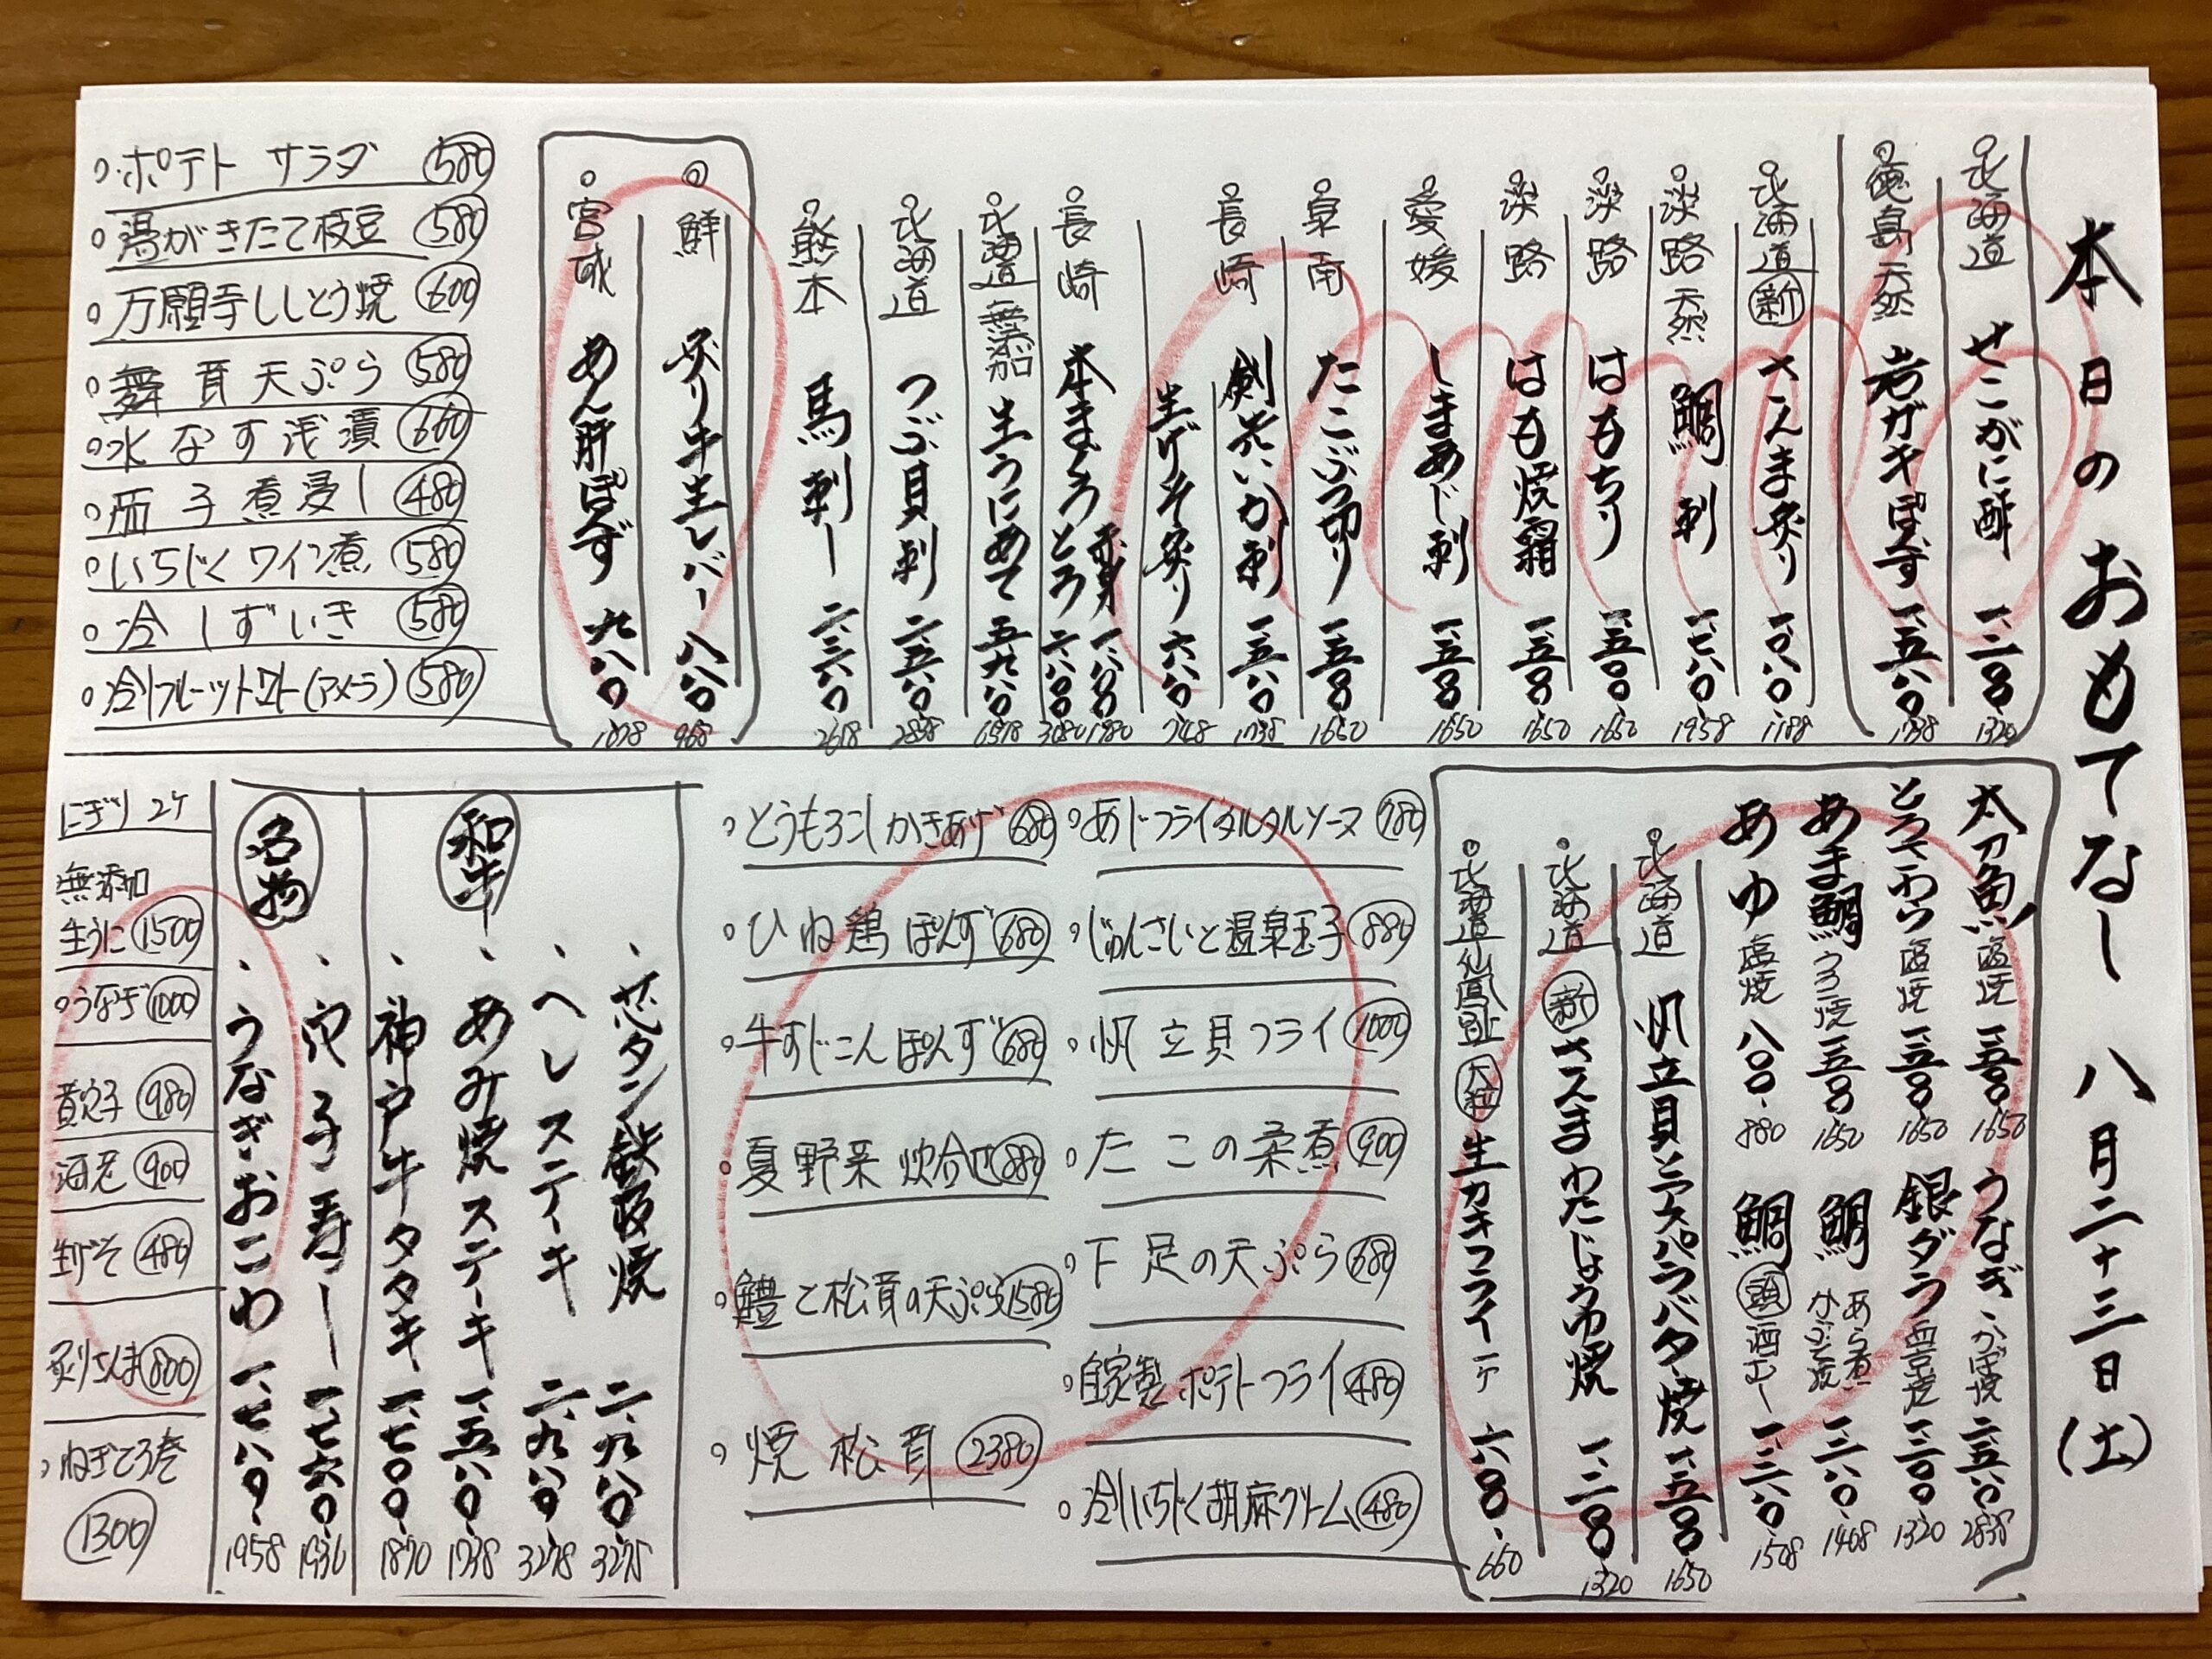 本日のおもてなし 八月二十三日(土)
北海道 せこがに酢 一、二〇〇 1320
徳島 天然 岩ガキぽんず 一、五八〇 1738
北海道 新 さんま炙り 一、〇八〇 1188
淡路 天然 鯛刺 一、七八〇 1958
淡路 はもちり 一、五〇〇 1650
淡路 はも焼霜 一、五〇〇 1650
愛媛 しまあじ刺 一、五〇〇 1650
泉南 たこぶつ切り 一、五〇〇 1650
長崎 剣先いか刺 一、五八〇 1738
生げそ炙り 六八〇 748
長崎 本まぐろ 赤身 一、八〇〇 1980
とろ 二、八〇〇 3080
北海道 無添加 生うにあて 五、九八〇 6578
北海道 つぶ貝刺 二、五八〇 2838
熊本 馬刺し 二、三八〇 2618
鮮 炙り牛生レバー 八八〇 968
宮城 あん肝ぽんず 九八〇 1078
ポテトサラダ 580
湯がきたて枝豆 580
万願寺ししとう焼 600
舞茸天ぷら 580
水なす浅漬 600
茄子煮浸し 480
いちじくワイン煮 580
冷しずいき 580
冷しフルーツトマト(アメーラ) 580
太刀魚 塩焼 一、五〇〇 1650
とろさわら 塩焼 一、五〇〇 1650
あま鯛 うろこ焼 一、五〇〇 1650
あゆ 塩焼 八〇〇 880
うなぎ かば焼 二、五八〇 2838
銀ダラ 西京焼 一、二〇〇 1320
鯛 あら煮 かぶと焼 一、二八〇 1408
鯛 頭 酒むし 一、三八〇 1508
北海道 帆立貝とアスパラバター焼 一、五〇〇 1650
北海道 新 さんまわたじょうゆ焼 一、二〇〇 1320
北海道 仙鳳趾 大粒 生カキフライ 一ケ 六〇〇 660
あじフライタルタルソース 780
じゅんさいと温泉玉子 880
帆立貝フライ 1000
たこの柔煮 900
下足の天ぷら 680
自家製ポテトフライ 480
冷しいちじく胡麻クリーム 480
とうもろこしかきあげ 680
ひね鶏ぽんず 680
牛すじこんぽんず 680
夏野菜炊合せ 880
鱧と松茸の天ぷら 1580
焼松茸 2380
和牛
芯タン鉄板焼 二、九八〇 3278
ヘレステーキ 二、九八〇 3278
あみ焼ステーキ 一、五八〇 1738
神戸牛タタキ 一、七〇〇 1870
名物
穴子寿し 一、七六〇 1936
うなぎおこわ 一、七八〇 1958
にぎり 2ケ
無添加
生うに 1500
うなぎ 1000
煮穴子 980
海老 900
生げそ 480
炙りさんま 800
ねぎとろ巻 1300